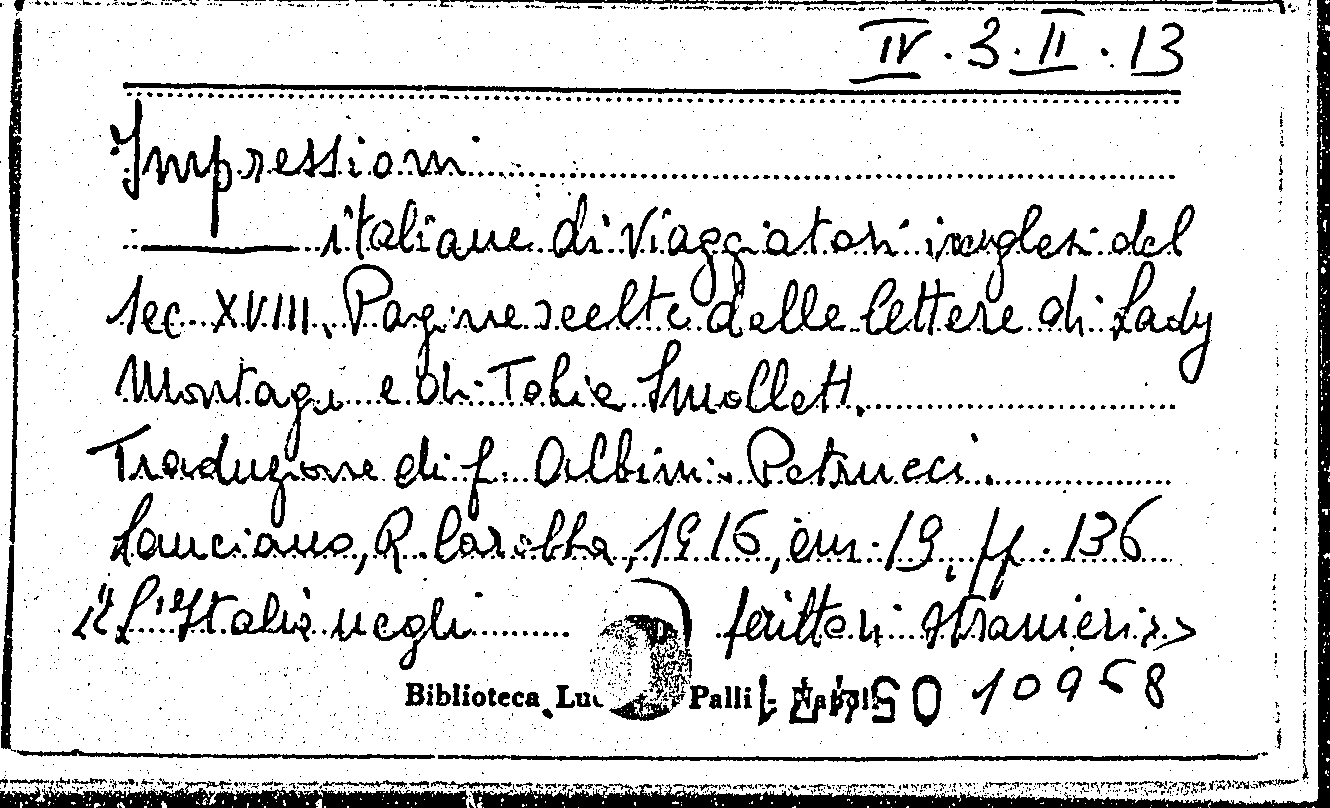 IV.3.II.13
Impressioni
italiane di viaggiatori inglesi del
sec. XVIII. Pagine scelte dalle lettere di Lady
Montagu e di Tobia Smollett.
Traduzione di f. Albini-Petrucci.
Lanciano, R. Carabba, 1916, in-19, pp. 136
"L'Italia negli scrittori stranieri»
Biblioteca Palli 10968